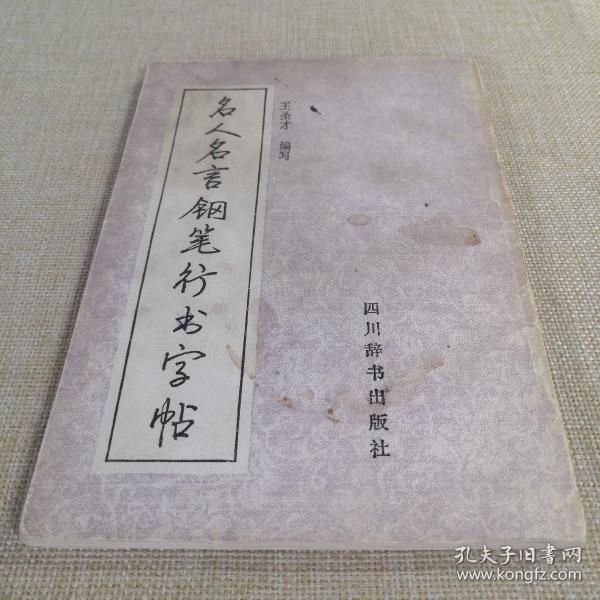 名人名言钢笔行书字帖
王圣才 编写
四川辞书出版社
孔夫子旧書网
www.kongfz.com